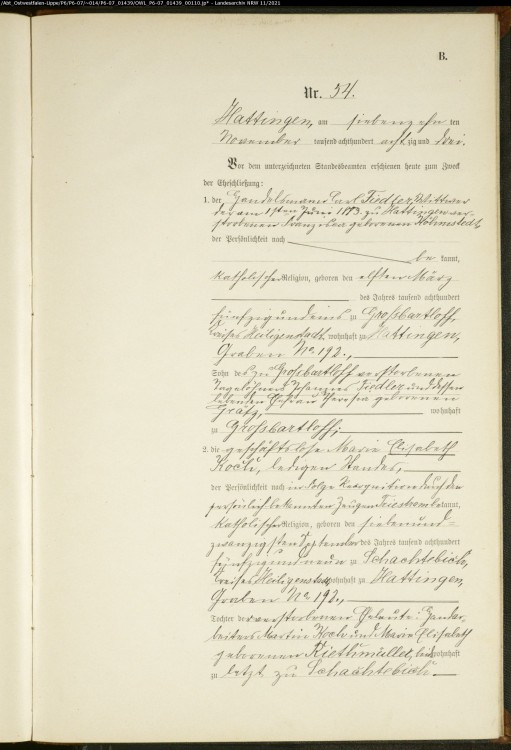 /Abt_Ostwestfalen-Lippe/P6/P6-07/~014/P6-07_01439/OWL_P6-07_01439_00110.jp* - Landesarchiv NRW 11/2021
B.
Nr. 54.
Hattingen, am siebenzehn ten
November tausend-achthundert acht zig und drei.
Vor dem unterzeichneten Standesbeamten erschienen heute zum Zweck
der Eheschließung:
1. der Handelsmann Carl Fiedler, Wittwer
der am 1sten Juni zu Hattingen ver-
storbenen geborenen
der Persönlichkeit nach
be kannt,
katholischer Religion, geboren den elften März
des Jahres tausend achthundert
fünfzigundeins zu Großbartloff,
Kreises Heiligenstadt, wohnhaft zu Hattingen,
Graben No. 192.,
Sohn des zu Großbartloff verstorbenen
Tagelöhners Fiedler und dessen
lebenden Ehefrau Theresa geborenen
wohnhaft
zu Großbartloff;
2. die geschäftslose Maria Elisabeth
Koch, ledigen Standes,
der Persönlichkeit nach in Folge Recognition durch den
persönlich bekannten Zeugen kannt,
katholischer Religion, geboren den siebenund-
zwanzigsten September des Jahres tausend achthundert
fünfzigundneun zu Schachtebich,
Kreises Heiligenstadt wohnhaft zu Hattingen,
Graben No. 192.,
Tochter der verstorbenen Eheleute: Handar-
beiters Martin Koch und Maria Elisabeth
geborenen Riethmüller, wohnhaft
zu letzt zu Schachtebich